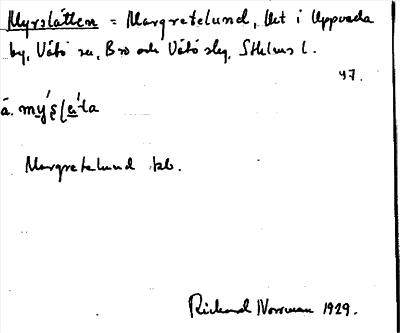 Myrslätten = Margretelund, lht i Uppveda
by, Vätö sn, Bro och Vätö slg, Sthlms l.
47.
ä.
Margretelund tb.
Rickard Norrman 1929.